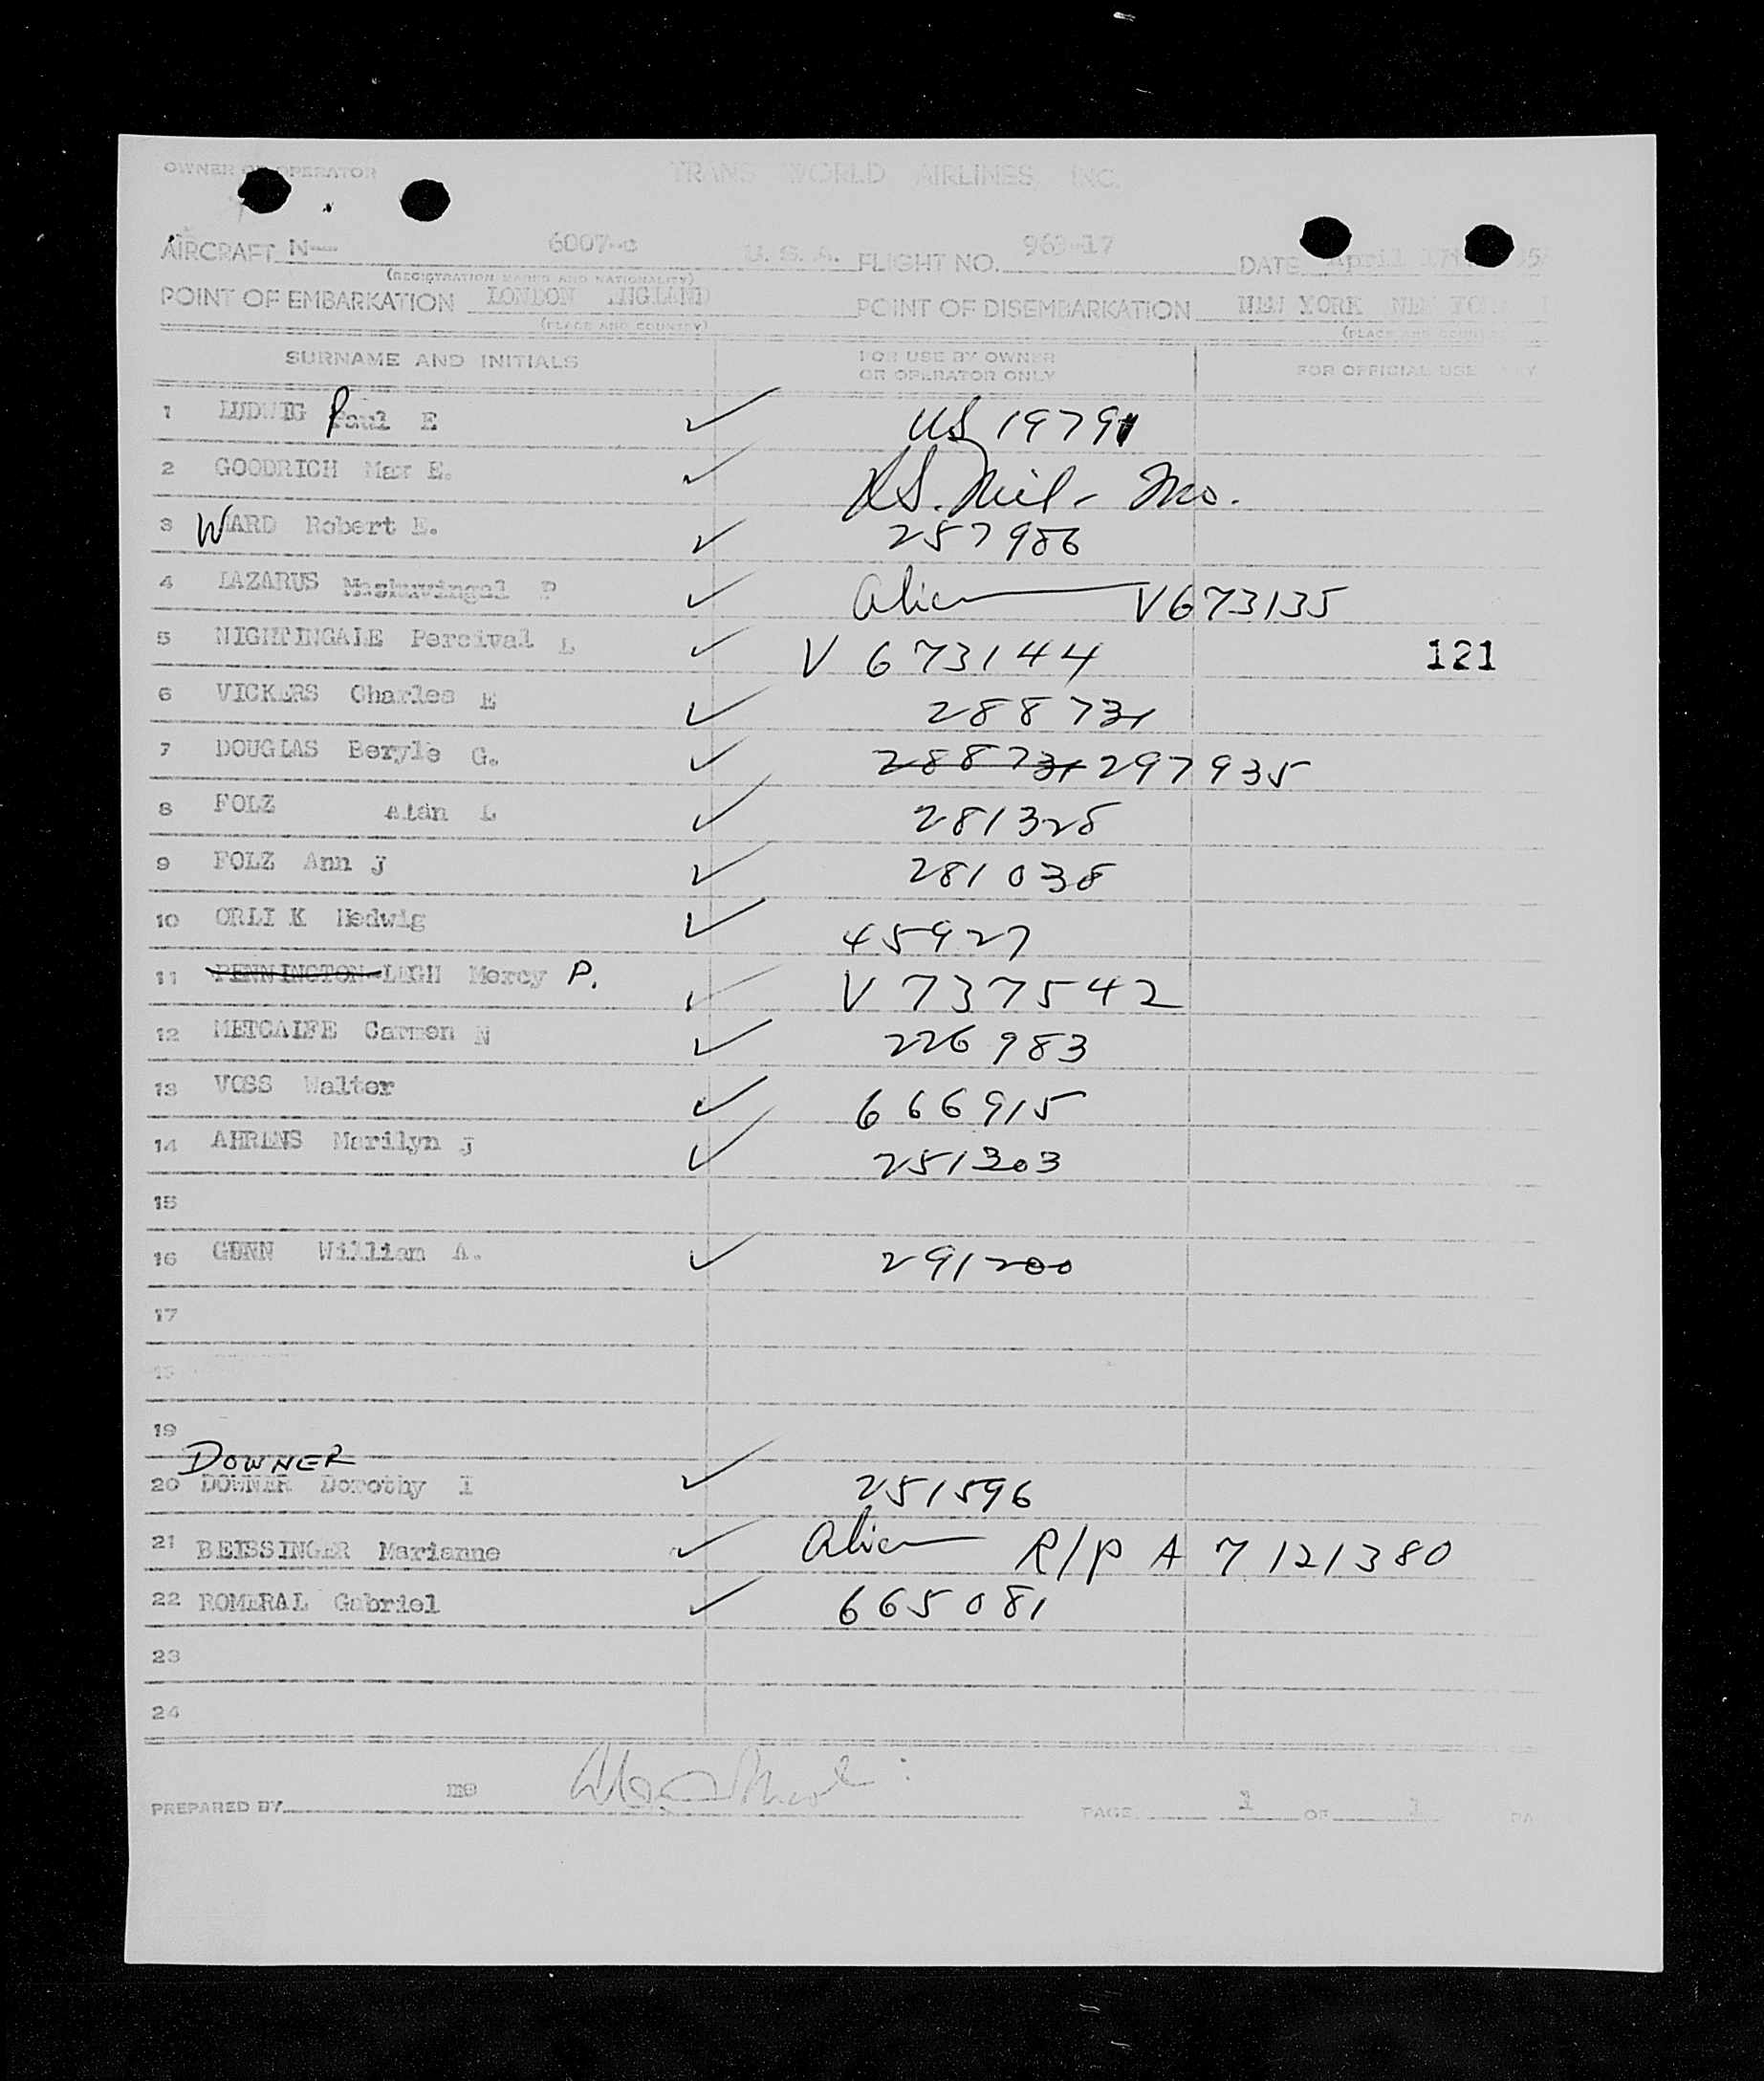 OWNER OR OPERATOR TRANS WORLD AIRLINES INC.
AIRCRAFT N--- 6007-c U. S. A. FLIGHT NO. 963-17 DATE April
(REGISTRATION MARKS AND NATIONALITY)
POINT OF EMBARKATION LONDON ENGLAND POINT OF DISEMBARKATION NEW YORK NEW
(PLACE AND COUNTRY) (PLACE AND COUNTRY)
SURNAME AND INITIALS FOR USE BY OWNER OR OPERATOR ONLY FOR OFFICIAL USE
1 LUDWIG Paul E ✓ US 19791
2 GOODRICH Max E. ✓
3 WARD Robert E. ✓ 257986
4 LAZARUS P ✓ Alien V673135
5 NIGHTINGALE Percival L ✓ V 673144 121
6 VICKERS Charles E ✓ 288731
7 DOUGLAS Beryle G. ✓ 288731 297935
8 FOLZ Alan L ✓ 281328
9 FOLZ Ann J ✓ 281038
10 ORLI K Hedwig ✓ 45927
11 PENNINGTON-LEGH Mercy P. ✓ V 737542
12 METCALFE Carmen N ✓ 226983
13 VOSS Walter ✓ 666915
14 AHRENS Marilyn J ✓ 251303
15
16 GUNN William A. ✓ 291200
17
18
19
DOWNER
20 DOWNER Dorothy I ✓ 251596
21 BEISSINGER Marianne ✓ Alien R/P A 7 121380
22 ROMERAL Gabriel ✓ 665081
23
24
PREPARED BY me PAGE 1 OF 1 PA